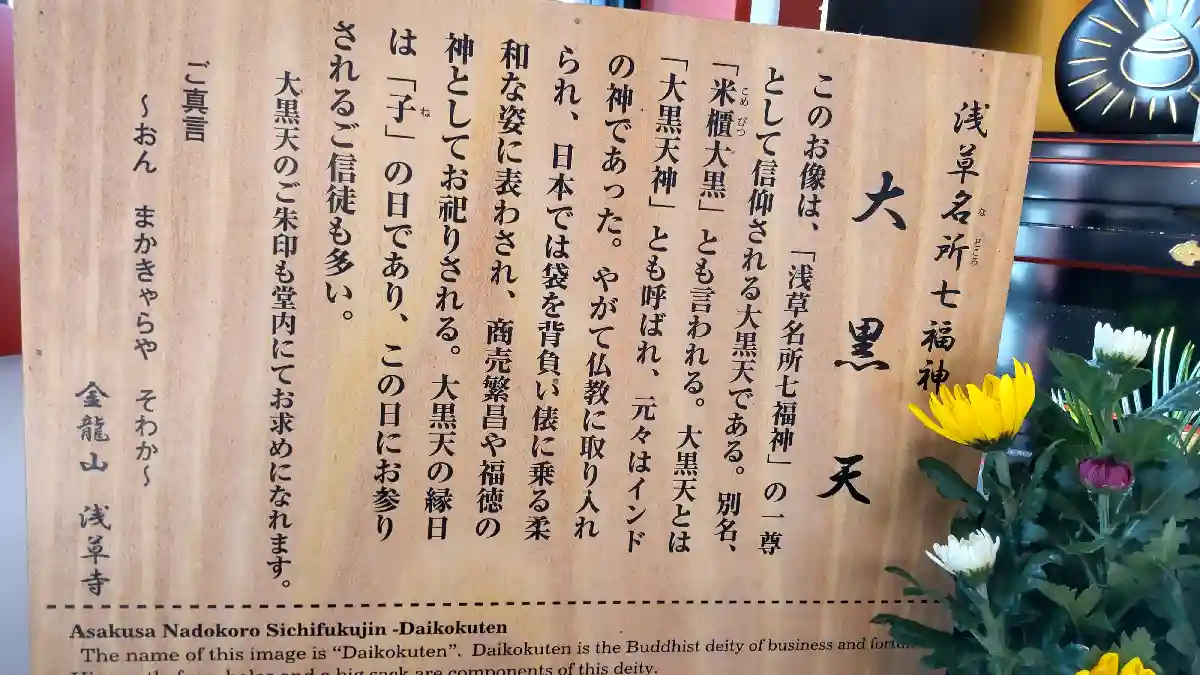 浅草名所七福神
などころ
大黒天
このお像は、「浅草名所七福神」の一尊
として信仰される大黒天である。別名、
「米櫃大黒」とも言われる。大黒天とは
こめびつ
「大黒天神」とも呼ばれ、元々はインド
の神であった。やがて仏教に取り入れ
られ、日本では袋を背負い俵に乗る柔
和な姿に表わされ、商売繁昌や福徳の
神としてお祀りされる。大黒天の縁日
は「子」の日であり、この日にお参り
ね
されるご信徒も多い。
大黒天のご朱印も堂内にてお求めになれます。
ご真言
〜おん まかきゃらや そわか〜
金龍山 浅草寺
Asakusa Nadokoro Sichifukujin -Daikokuten
The name of this image is “Daikokuten”. Daikokuten is the Buddhist deity of business and
a big sack are components of this deity.